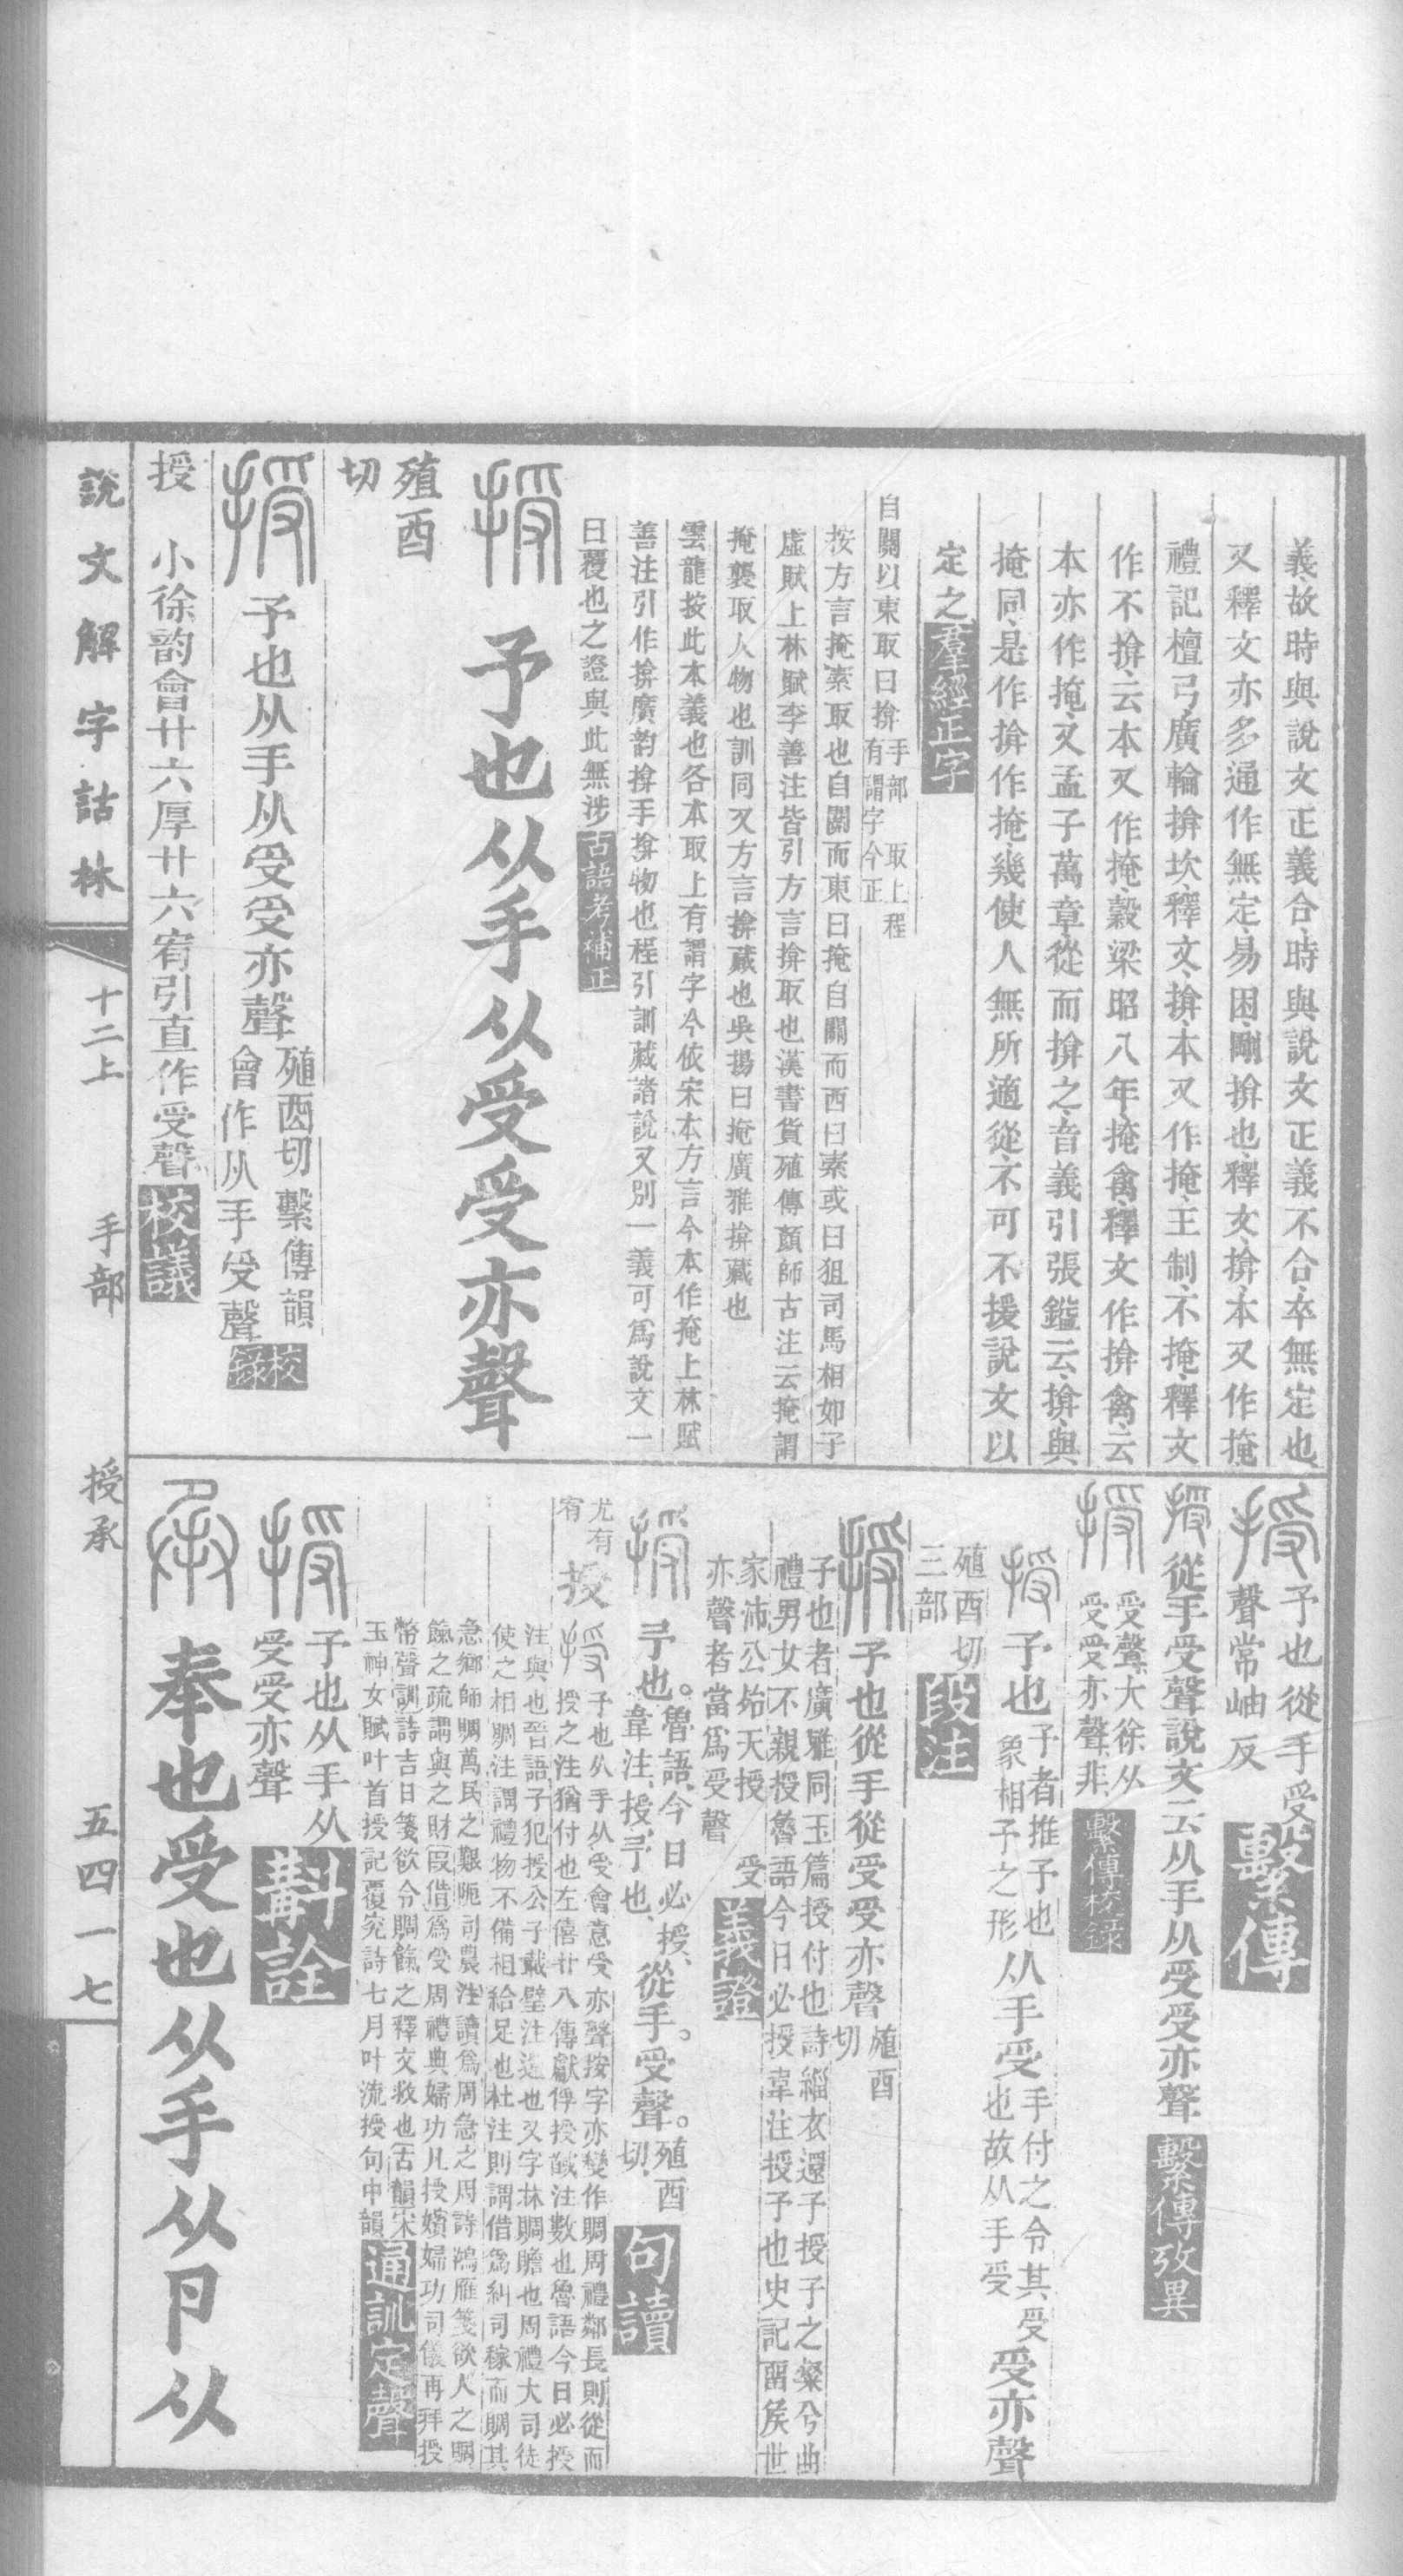 義、故時與說文正義合、時與說文正義不合、卒無定也、
又釋文亦多通作無定、易困、剛揜也、釋文、揜、本又作掩、
禮記檀弓、廣輪揜坎、釋文、揜、本又作掩、王制、不掩、釋文
作不揜、云本又作掩、穀梁昭八年、掩禽、釋文作揜禽、云
本亦作掩、又孟子萬章、從而揜之、音義引張鎰云、揜、與
掩同、是作揜作掩、幾使人無所適從、不可不援說文以
定之羣經正字
自關以東取曰揜手部 取上程
有謂字今正
按方言掩索取也自關而東曰掩自關而西曰索或曰狙司馬相如子
虛賦上林賦李善注皆引方言揜取也漢書貨殖傳顏師古注云掩謂
掩襲取人物也訓同又方言揜蔵也吳揚曰掩廣雅揜藏也
雲龍按此本義也各本取上有謂字今依宋本方言今本作掩上林賦
善注引作揜廣韵揜手揜物也程引訓藏諸說又別一義可爲說文一
曰覆也之證與此無涉古語考補正
授 予也从手从受受亦聲
殖酉
切
授 予也从手从受受亦聲殖酉切繫傳韻
會作从手受聲校錄
授 小徐韵會廿六厚廿六宥引直作受聲校議
授 予也從手受
聲常岫反繫傳
授 從手受聲說文云从手从受受亦聲繫傳攷異
授 受聲大徐从
受受亦聲非繫傳校錄
授 予也予者推予也
象相予之形从手受手付之令其受
也故从手受受亦聲
殖酉切
三部段注
授 予也從手從受受亦聲殖酉
切
予也者廣雅同玉篇授付也詩緇衣還予授子之粲兮曲
禮男女不親授魯語今日必授韋注授予也史記留侯世
家沛公殆天授 受
亦聲者當爲受聲義證
授 予也。魯語、今日必授、
韋注、授、予也、從手。受聲。殖酉
切、句讀
尤有
宥授授 予也从手从受會意受亦聲按字亦變作賙周禮鄰長則從而
授之注猶付也左僖廿八傳獻俘授馘注數也魯語今日必授
注與也晉語子犯授公子載璧注還也又字林賙贍也周禮大司徒
使之相賙注謂禮物不備相給足也杜注則謂借爲糾司稼而賙其
急鄉師賙萬民之艱阨司農注讀爲周急之周詩鴻雁箋欲人之賙
餼之疏謂與之財叚借爲受周禮典婦功凡授嬪婦功司儀再拜授
幣聲訓詩吉日箋欲令賙餼之釋文救也古韻宋
玉神女賦叶首授記覆究詩七月叶流授句中韻通訓定聲
授 予也从手从
受受亦聲斠詮
承 奉也受也从手从卪从
說文解字詁林
十二上 手部 授承 五四一七